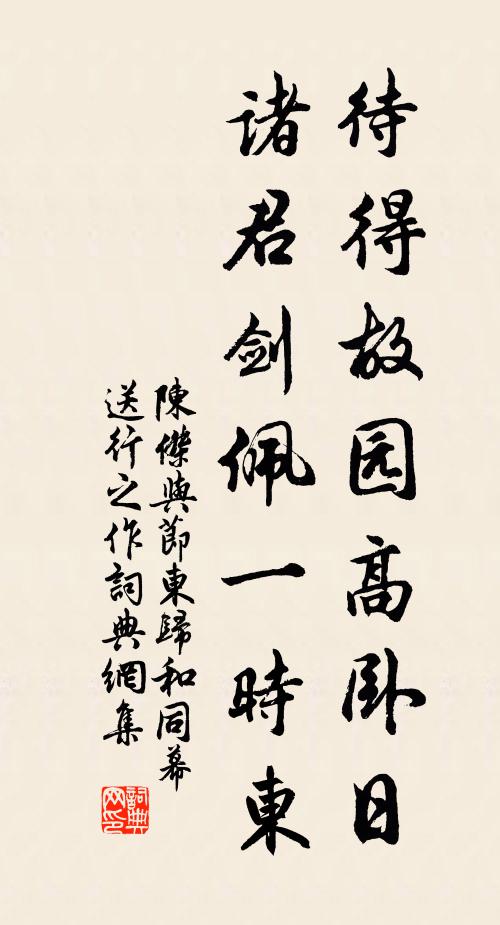 待得故园高卧日
諸君剑佩一時東
陳傑與節東歸和同幕
送行之作詞典網集
詞典网印